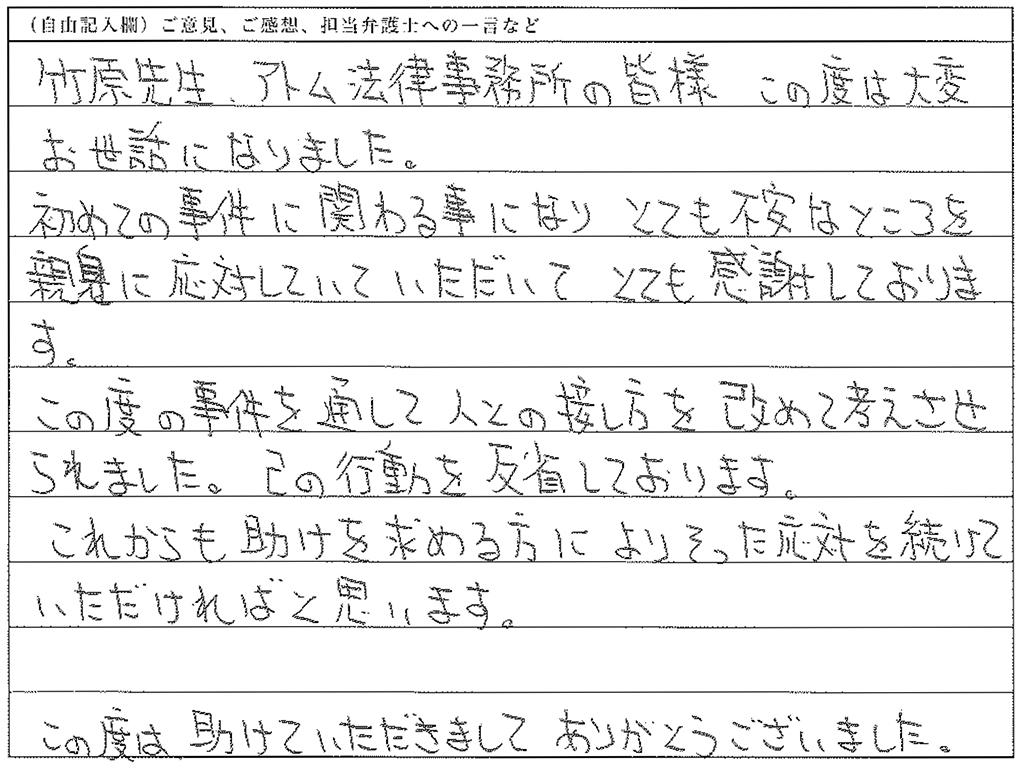 （自由記入欄）ご意見、ご感想、担当弁護士への一言など
竹原先生、アトム法律事務所の皆様 この度は大変
お世話になりました。
初めての事件に関わる事になり とても不安なところを
親身に応対していていただいて とても感謝しておりま
す。
この度の事件を通して人との接し方を改めて考えさせ
られました。己の行動を反省しております。
これからも助けを求める方によりそった応対を続けて
いただければと思います。
この度は助けていただきまして ありがとうございました。